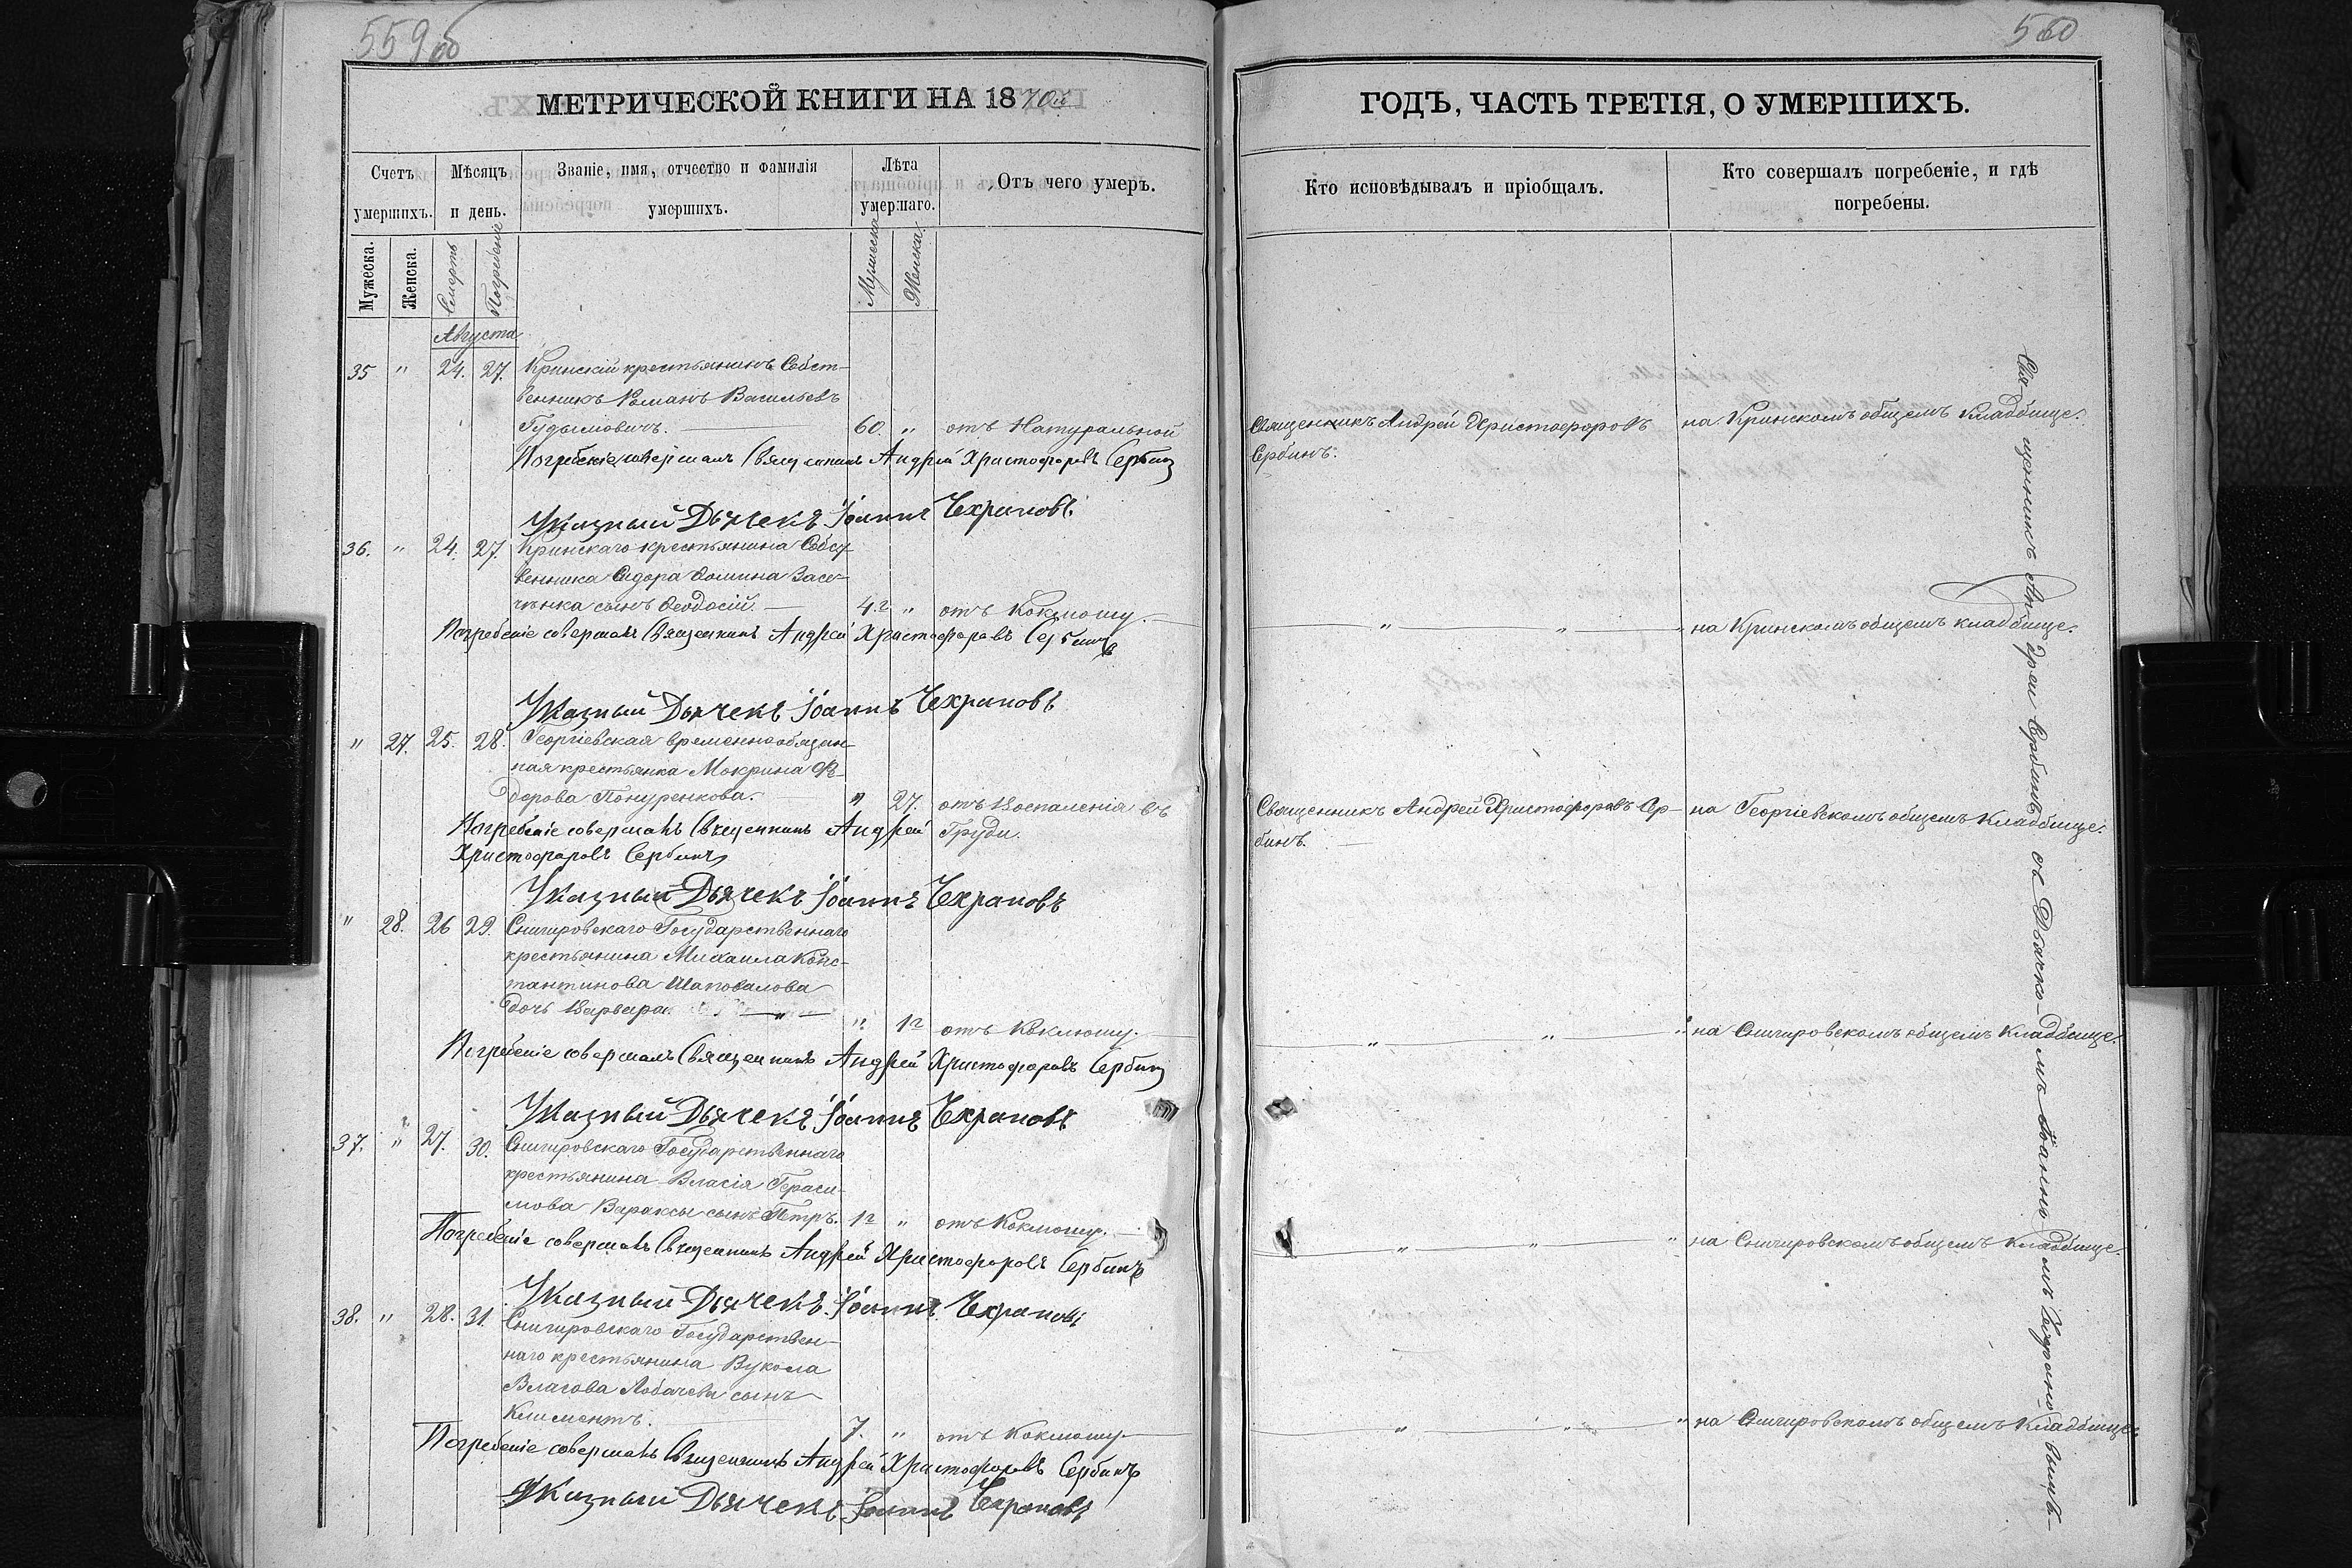 559об
МЕТРИЧЕСКОЙ КНИГИ НА 1870й
Счетъ умершихъ.
Мѣсяцъ и день.
Званіе, имя, отчество и фамилія умершихъ.
Лѣта умершаго.
Отъ чего умеръ.
Мужеска.
Женска.
Смерть
Погребеніе
Мужеска
Женска.
Августа
35 " 24. 27. Кринскій крестьянинъ Собст-
венникъ Романъ Васильевъ
Гудымовичъ. 60. " отъ Натуральной
Погребеніе совершалъ Священникъ Андрей Христофоровъ Сербинъ
Указный Дьячекъ Іоаннъ Чехрановъ
36. " 24. 27. Кринскаго крестьянина Собст
венника Сидора Фомина
сынъ Феодосій. 4.г " отъ Коклюшу.
Погребеніе совершалъ Священникъ Андрей Христофоровъ Сербинъ
Указный Дьячекъ Іоаннъ Чехрановъ
" 27. 25. 28. Георгіевская временнообязан-
ная крестьянка Мокрина Фе-
дорова Понуренкова. " 27. отъ Воспаленія въ
Груди.
Погребеніе совершалъ Священникъ Андрей
Христофоровъ Сербинъ
Указный Дьячекъ Іоаннъ Чехрановъ
" 28. 26 29. Снигировскаго Государственнаго
крестьянина Михаила Конс-
тантинова Шаповалова
дочь Варвара. " 1г отъ Коклюшу.
Погребеніе совершалъ Священникъ Андрей Христофоровъ Сербинъ
Указный Дьячекъ Іоаннъ Чехрановъ
37. " 27. 30. Снигировскаго Государственнаго
крестьянина Власія Гераси-
мова Вараксы сынъ Петръ. 1г " отъ Коклюшу.
Погребеніе совершалъ Священникъ Андрей Христофоровъ Сербинъ
Указный Дьячекъ Іоаннъ Чехрановъ
38. " 28. 31. Снигировскаго Государствен-
наго крестьянина Вукола
Власова Лобачева сынъ
Климентъ. 7. " отъ Коклюшу.
Погребеніе совершалъ Священникъ Андрей Христофоровъ Сербинъ
Указный Дьячекъ Іоаннъ Чехрановъ
560
ГОДЪ, ЧАСТЬ ТРЕТІЯ, О УМЕРШИХЪ.
Кто исповѣдывалъ и пріобщалъ.
Кто совершалъ погребеніе, и гдѣ
погребены.
Священникъ Андрей Христофоровъ на Кринскомъ общемъ Кладбище.
Сербинъ.
" " на Кринскомъ общемъ кладбище.
Священникъ Андрей Христофоровъ Сер- на Георгіевскомъ общемъ Кладбище.
бинъ.
" " " на Снигировскомъ общемъ Кладбище.
" " " на Снигировскомъ общемъ Кладбище.
" " " на Снигировскомъ общемъ Кладбище.
Священникъ Андрей Сербинъ съ Дьячко-мъ Іоанномъ Чехрановымъ